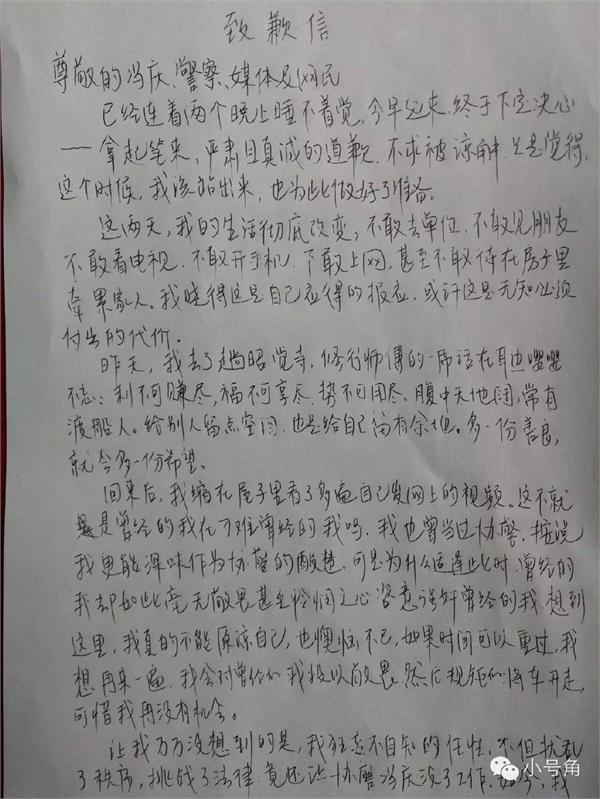 致歉信
尊敬的冯庆、警察、媒体及网民
已经连着两个晚上睡不着觉,今早起来,终于下定决心
——拿起笔来,严肃且真诚的道歉,不求被谅解,只是觉得,
这个时候,我该站出来,也为此做好了准备。
这两天,我的生活彻底改变,不敢去单位,不敢见朋友
不敢看电视,不敢开手机,不敢上网,甚至不敢待在房子里
牵累家人。我晓得这是自己应得的报应,或许这是无知必须
付出的代价。
昨天,我去了趟昭觉寺,修行师傅的一席话在耳边嘤嘤
不忘:利不可赚尽,福不可享尽,势不可用尽。腹中天地阔,常有
渡船人。给别人留点空间,也是给自己留有余地。多一份善良,
就会多一份希望。
回来后,我缩在屋子里看了多遍自己发网上的视频。这不就
是曾经的我在刁难曾经的我吗,我也曾当过协警,按说
我更能深味作为协警的酸楚,可是为什么适逢此时,曾经的
我却如此毫无敬畏甚至怜悯之心恣意强奸曾经的我,想到
这里,我真的不能原谅自己,也懊恼不已,如果时间可以重过,我
想再来一遍,我会对曾经的我报以敬畏,然后规矩的将车开走,
可惜我再没有机会。
让我万万没想到的是,我狂态不自知的任性,不但扰乱
了秩序,挑战了法律,竟还让一协警冯庆没了工作,如今,我
小号角